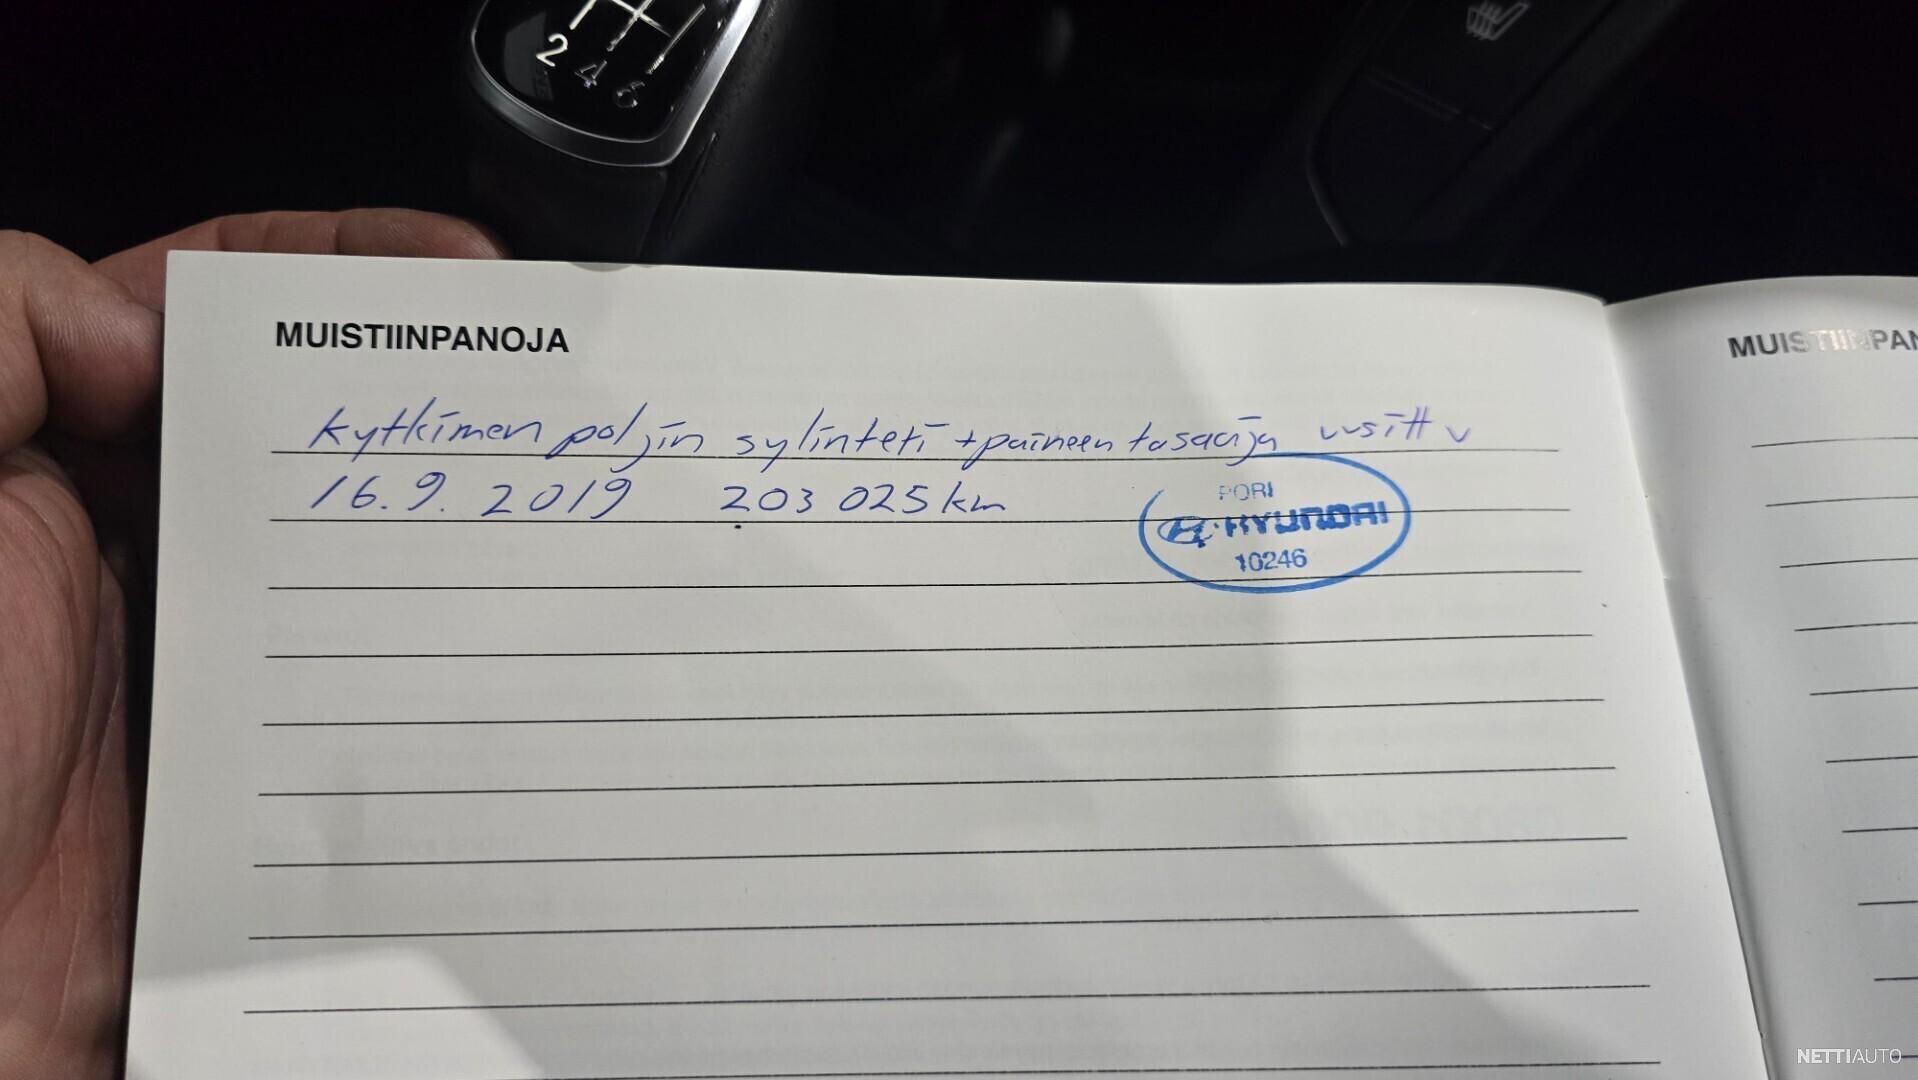 2 4 6
MUISTIINPANOJA
MUISTIINPAN
kytkimen poljin sylinteri + paineen tasaaja uusittu
16.9.2019 203 025 km
PORI
HYUNDAI
10246
NETTIAUTO